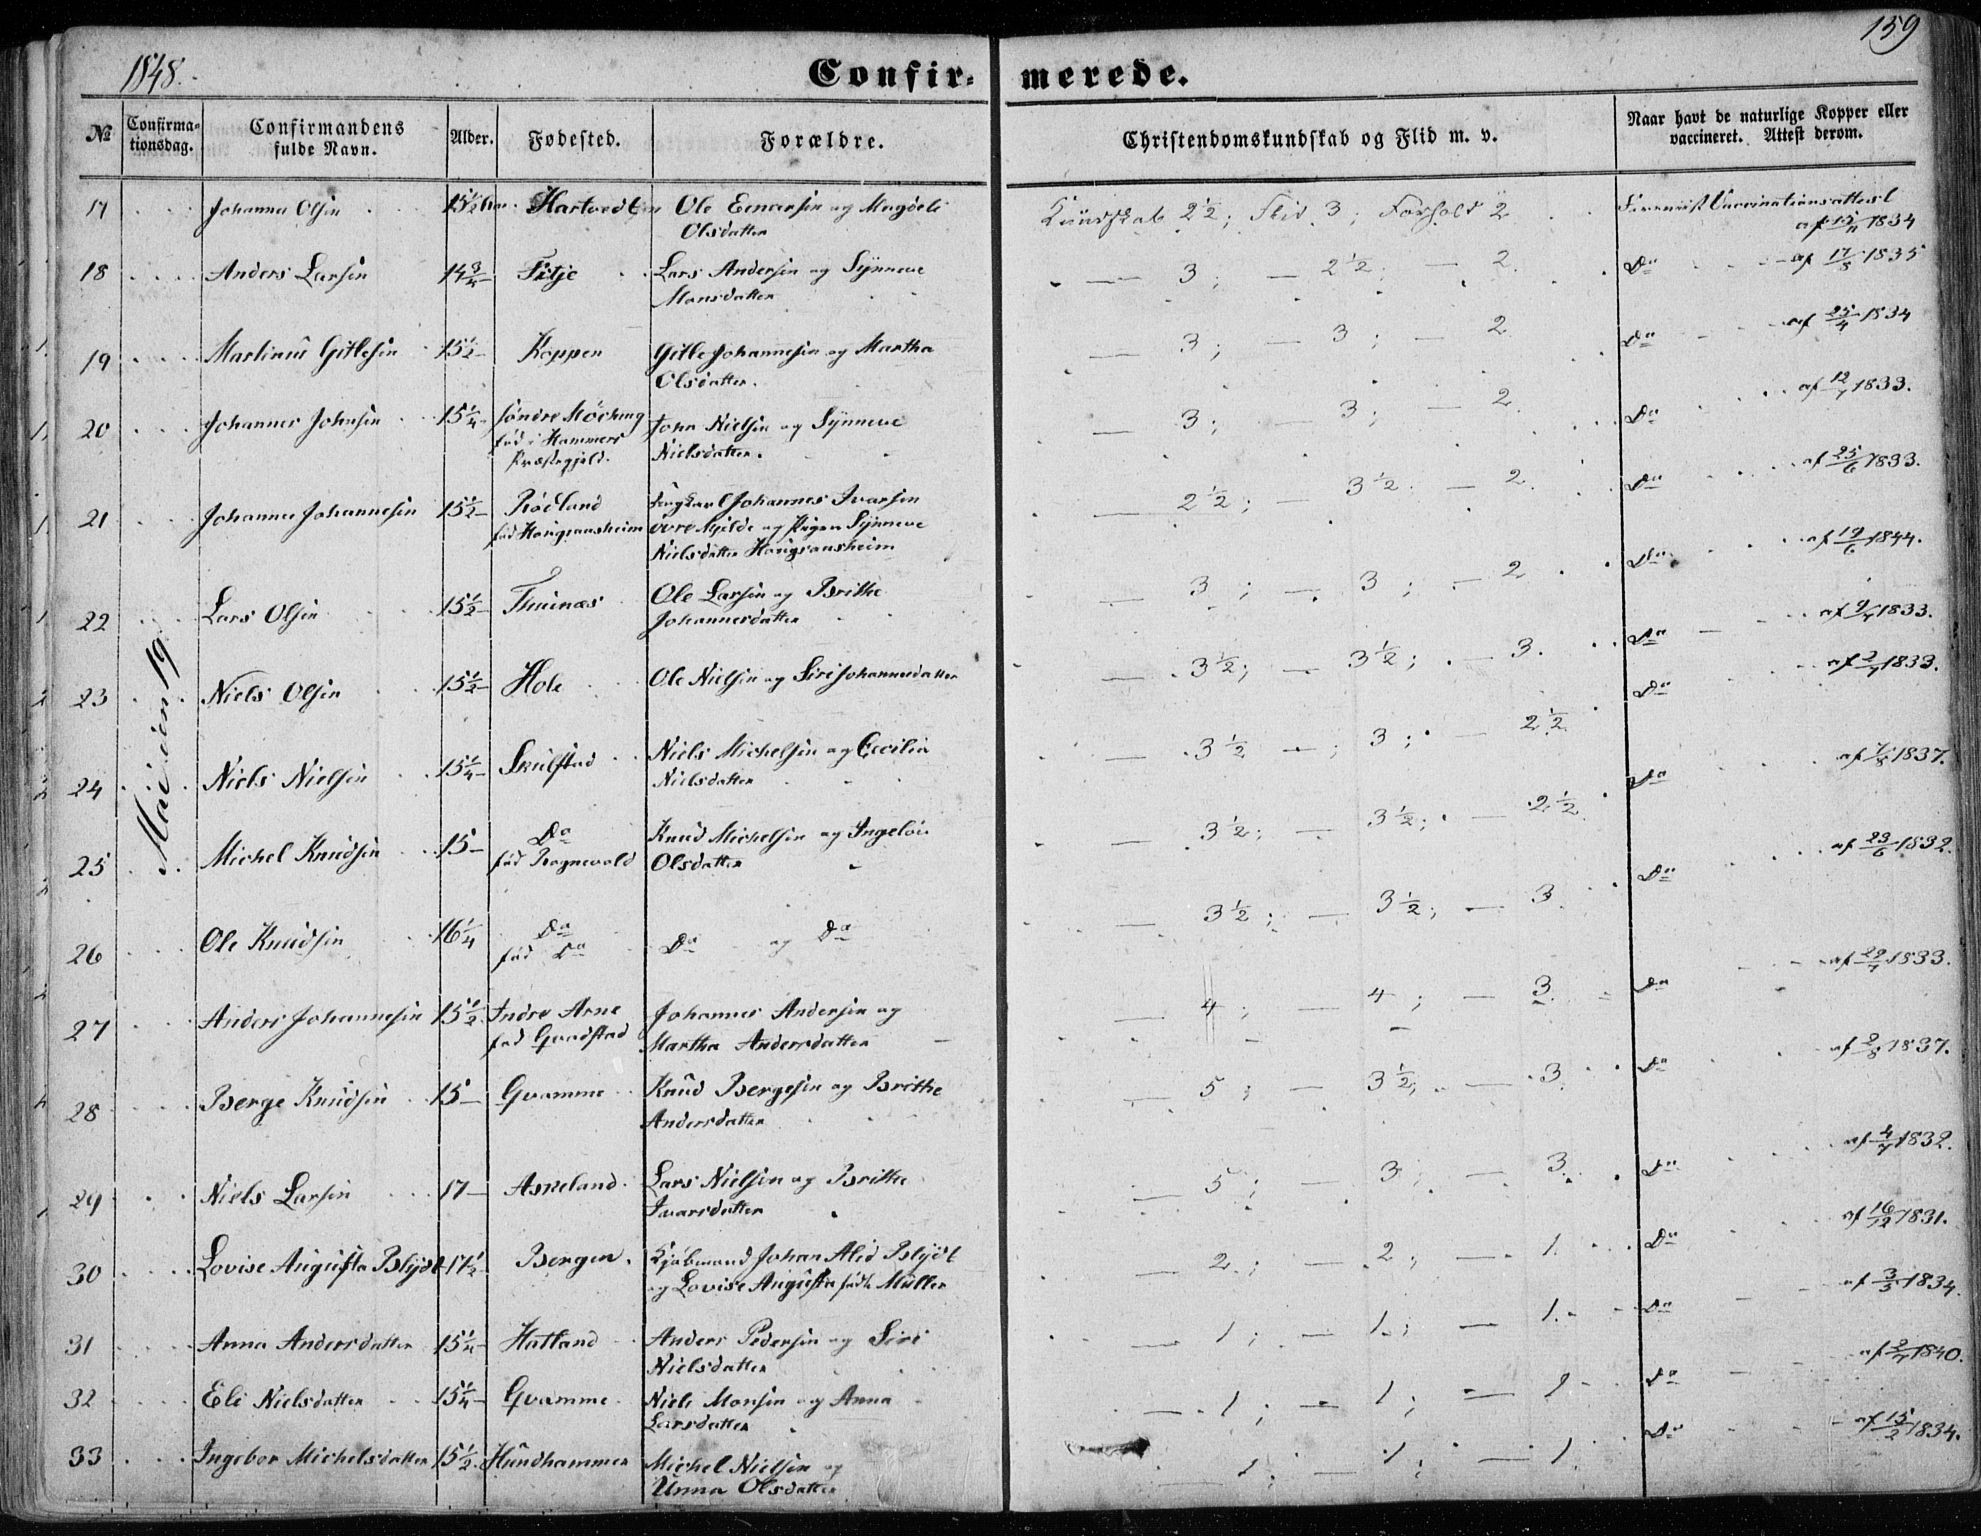 1848.
159
Confirmerede.
No
Confirmationsdag.
Confirmandens fulde Navn.
Alder.
Fødested.
Forældre.
Christendomskundskab og Flid m. v.
Naar havt de naturlige Kopper eller vaccineret. Attest derom.
Mai den 19
17 Johannes Olsen 15 1/2 Aar Hartvedten Ole Einersen og Magdeli Kundskab 2 1/2; Flid 3; Forhold 2 Vaccinationsattest
Olsdatter af 15/11 1834
18 Anders Larsen 14 3/4 Fitje Lars Andersen og Synneve — 3; — 2 1/2; — 2. Do af 17/8 1835
Monsdatter
19 Martinus Gitlesen 15 1/2 Koppen Gitle Johannesen og Martha — 3; — 3; — 2 Do af 25/4 1834
Olsdatter.
20 Johannes Johnsen 15 1/4 søndre John Nielsen og Synneve — 3; — 3; — 2. Do af 12/7 1833.
fød i Hammers Nielsdatter.
Præstegjeld.
21 Johannes Johannesen 15 1/2 Rødland Ungkarl Johannes Ivarsen — 2 1/2; — 3 1/2; — 2. Do af 25/6 1833.
fød Haugsansheim øvre og Pigen Synneve
Nielsdatter Haugsansheim
22 Lars Olsen 15 1/2 Thuenæs Ole Larsen og Brithe — 3; — 3; — 2 Do af 19/6 1844.
Johannesdatter
23 Niels Olsen 15 1/2 Hole Ole Nielsen og Siri Johannesdatter — 3 1/2; — 3 1/2; — 3. Do af 9/7 1833.
24 Niels Nielsen 15 1/4 Skulstad Niels Michelsen og Cecilia — 3 1/2 —; 3; — 2 1/2 Do af 2/7 1833.
Nielsdatter
25 Michel Knudsen 15 Do Knud Michelsen og Ingebor — 3 1/2; — 3 1/2; — 2 1/2 Do af 7/8 1837.
fød Rognevald Olsdatter
26 Ole Knudsen 16 1/4 Do Do og Do — 3 1/2; — 3 1/2; — 3. Do af 23/6 1832.
fød Do
27 Anders Johannesen 15 1/2 Indre Arne Johannes Andersen og — 4; — 4; — 3. Do af 29/7 1833.
fød Gaadstad Martha Andersdatter
28 Berge Knudsen 15 Gvamme Knud Bergesen og Brithe — 5; — 3 1/2; — 3. Do af 2/8 1837.
Andersdatter
29 Niels Larsen 17 Asneland Lars Nielsen og Brithe — 5; — 3; — 3. Do af 4/7 1832.
Ivarsdatter
30 Lovise Augusta Blydt 17 1/2 Bergen. Kjøbmand Johan Alid Blydt — 2.; — 2; — 1. Do af 16/12 1831.
og Lovise Augusta født Müller
31 Anna Andersdatter 15 1/4 Hatland Anders Pedersen og Siri — 1; — 1.; — 1. Do af 3/5 1834.
Nielsdatter
32 Eli Nielsdatter 15 1/4 Gvamme Niels Monsen og Anna — 1; — 1; — 1 Do af 2/7 1840.
Larsdatter
33 Ingebor Michelsdatter 15 1/2 Hundhammer Michel Nielsen og — 1; — 1; — 1. Do af 15/2 1834.
Unna Olsdatter